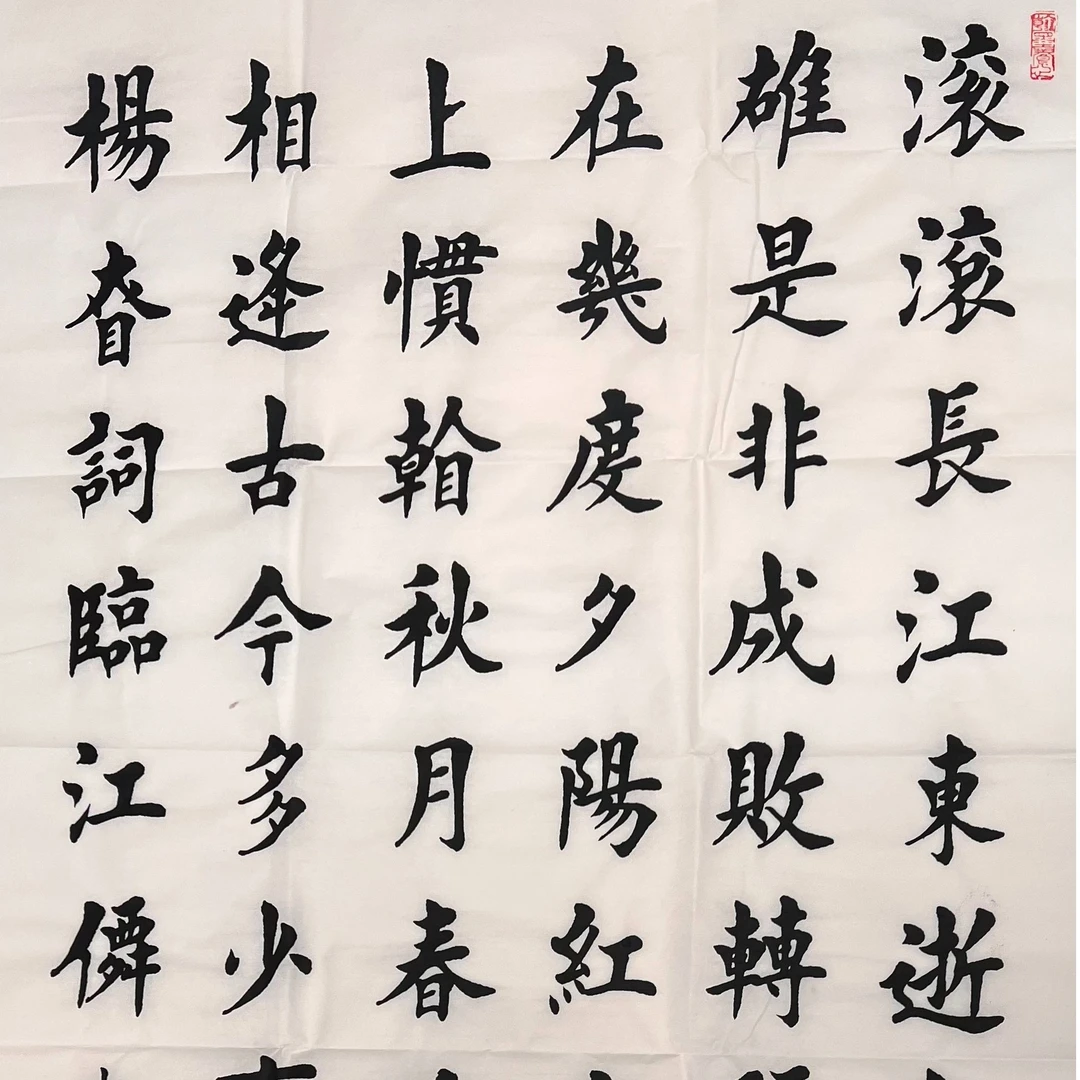 滚滾長江東逝
雄是非成敗轉
在幾度夕陽紅
上慣秋月春
相逢古今多少
楊眘詞臨江僊